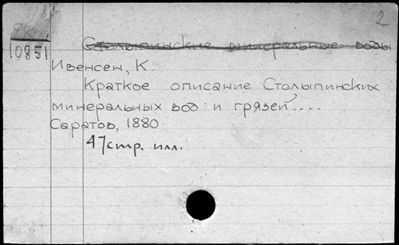 2
10851
Столыпинские минеральные воды
Ивенсен, К.
Краткое описание Столыпинских
минеральных вод и грязей....
Саратов, 1880
47 стр. илл.